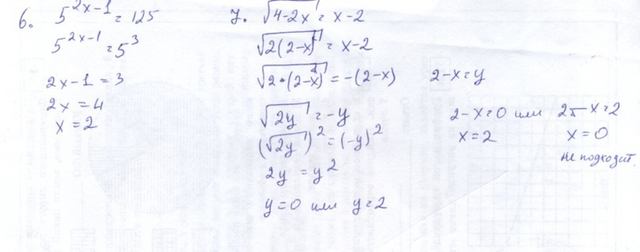 6. 5^{2x-1} = 125
5^{2x-1} = 5^3
2x-1 = 3
2x = 4
x = 2
7. √(4-2x) = x-2
√(2(2-x)) = x-2
√(2*(2-x)) = -(2-x) 2-x=y
√(2y) = -y
(√(2y))^2 = (-y)^2
2y = y^2
y=0 или y=2
2-x=0 или 2-x=2
x=2 x=0
не подходит.